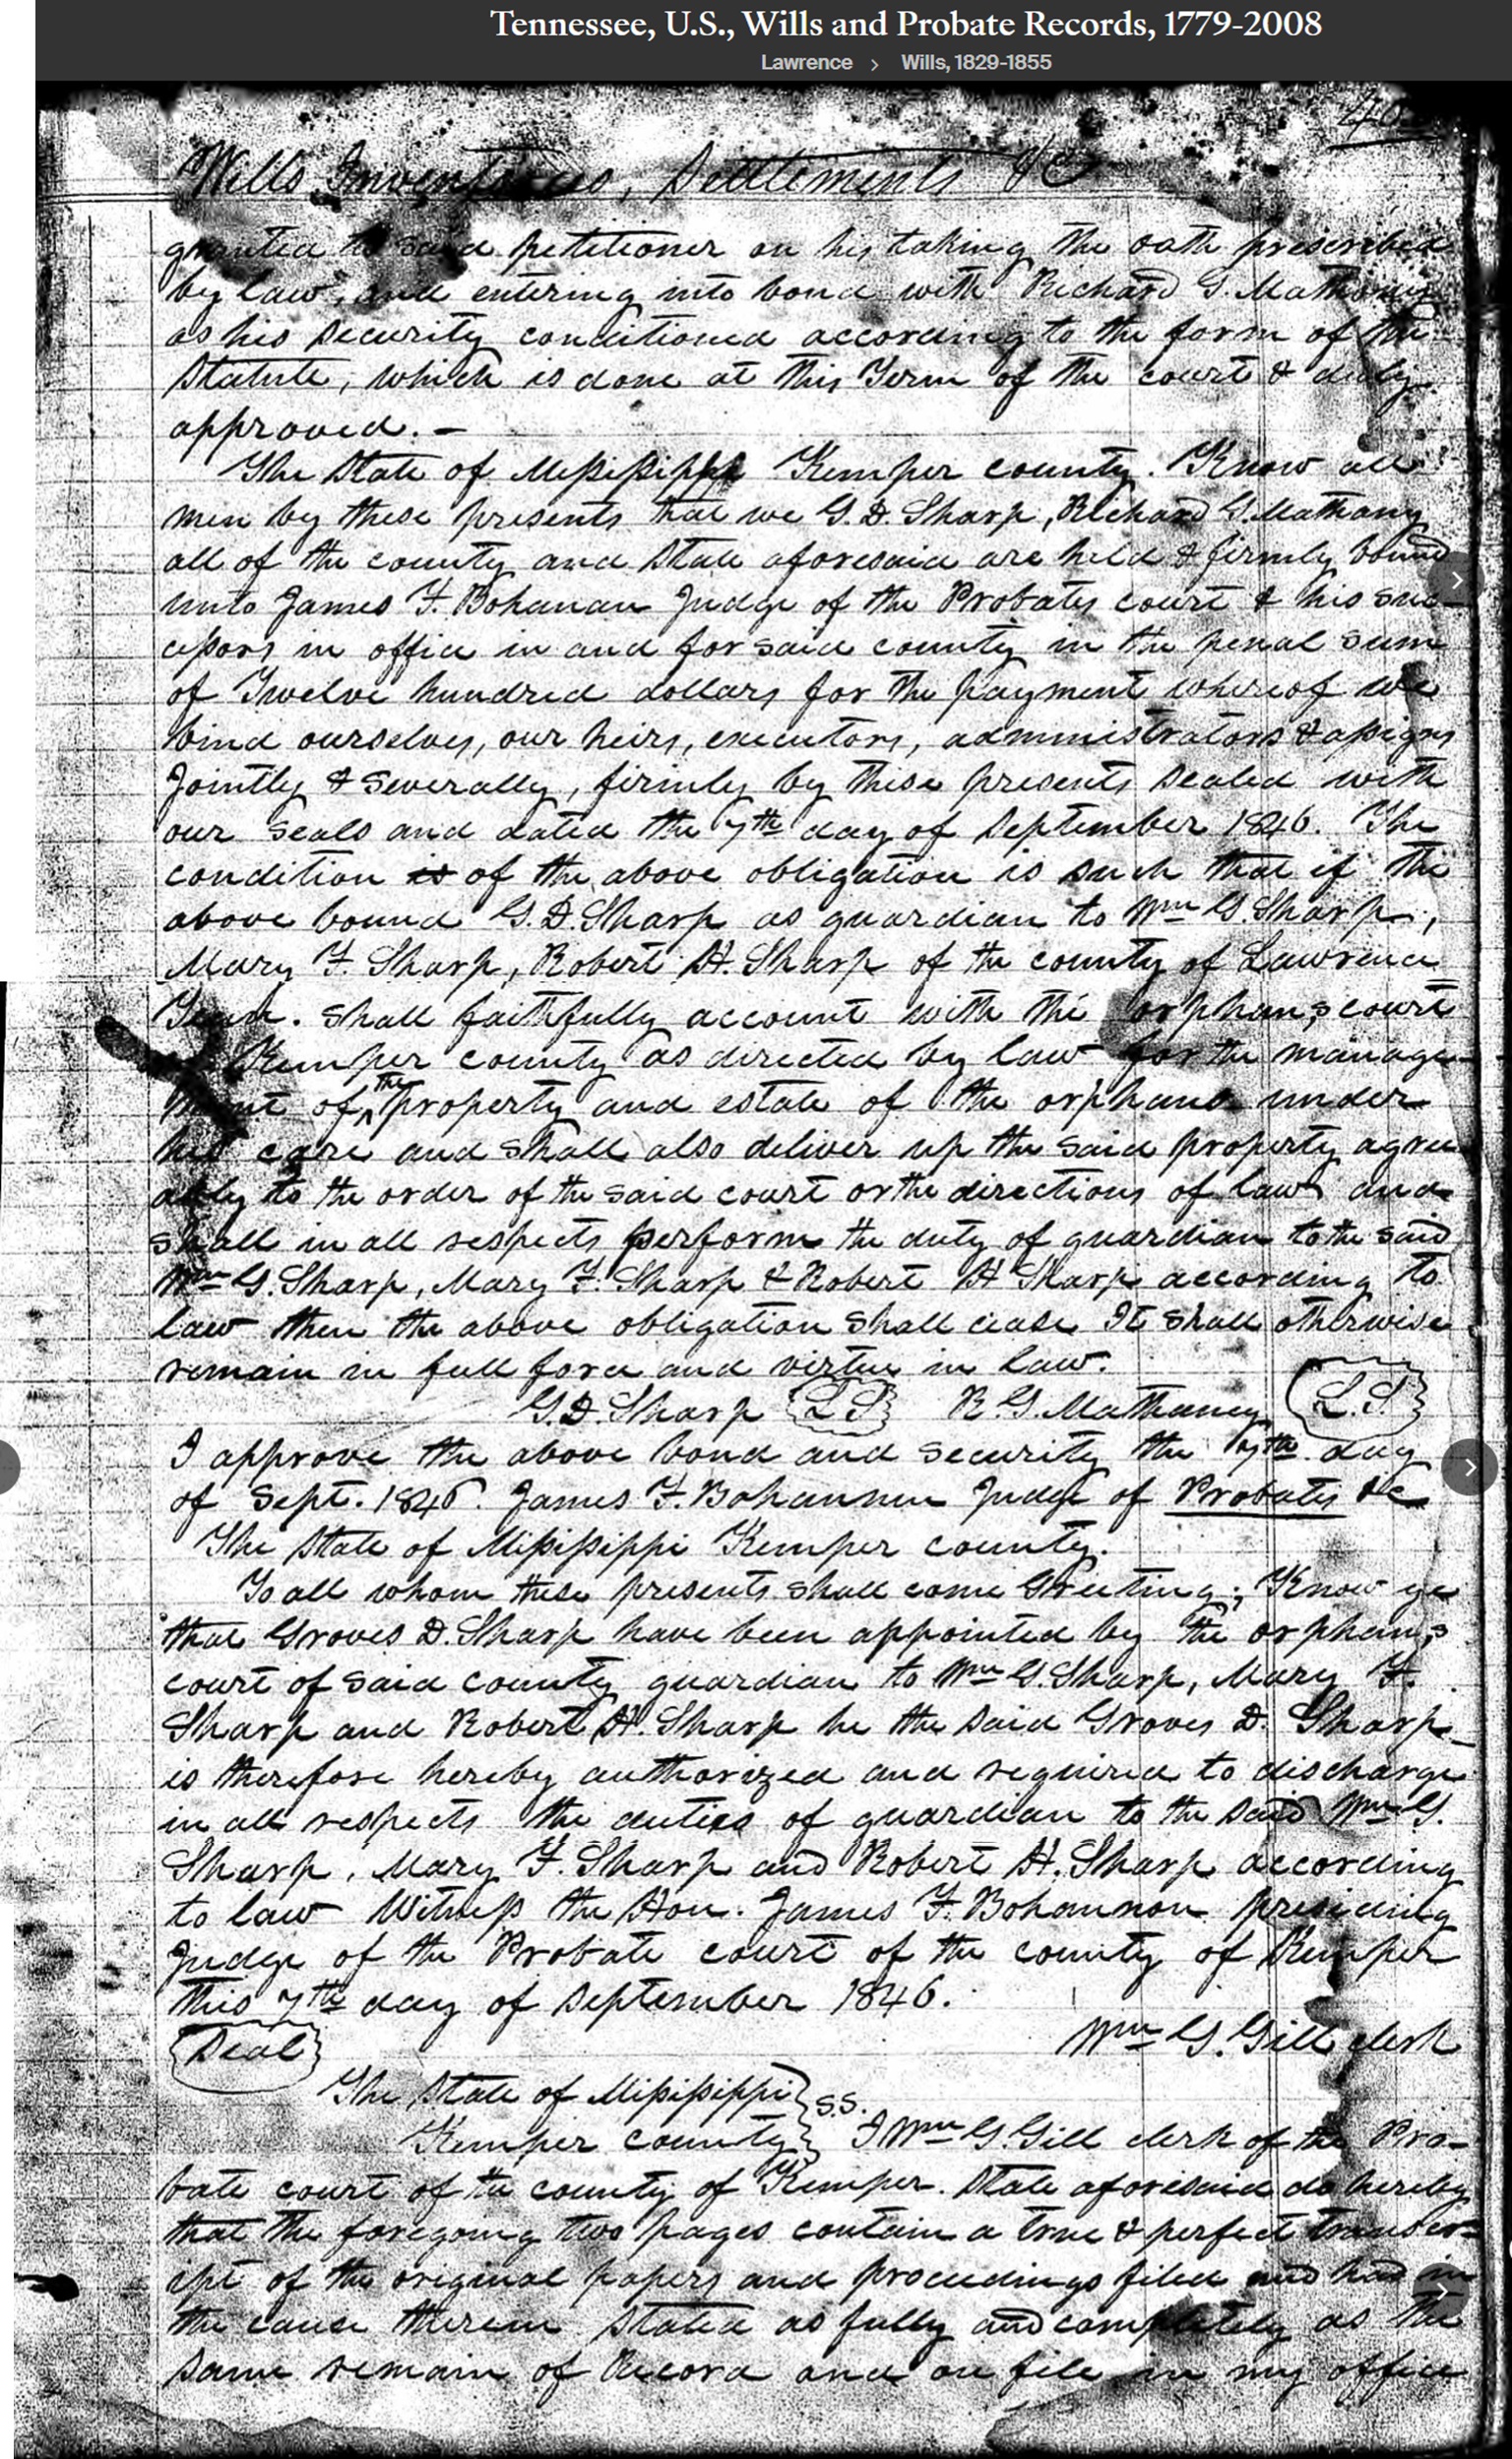 Tennessee, U.S., Wills and Probate Records, 1779-2008
Lawrence > Wills, 1829-1855
Wills Inventories, Settlements &C
granted to said petitioner on his taking the oath prescribed
by law, and entering into bond with Richard G. Mathany
as his security conditioned according to the form of the
Statute, which is done at this Term of the court & duly
approved. –
The State of Mississippi Kemper county. Know all
men by these presents that we G. D. Sharp, Richard G. Mathany
all of the county and State aforesaid are held & firmly bound
unto James F. Bohanan Judge of the Probates court & his suc-
cessors in office in and for said county in the penal sum
of Twelve hundred dollars for the payment whereof we
bind ourselves, our heirs, executors, administrators & assigns
Jointly & severally, firmly by these presents sealed with
our seals and dated the 7th day of September 1846. The
condition is of the above obligation is such that if the
above bound G. D. Sharp as guardian to Wm G. Sharp,
Mary F. Sharp, Robert H. Sharp of the county of Lawrence
Tenn. shall faithfully account with the orphan,s court
Kemper county as directed by law for the manage-
ment of the property and estate of the orphans under
his care and shall also deliver up the said property agree
ably to the order of the said court or the directions of law and
shall in all respects perform the duty of guardian to the said
Wm G. Sharp, Mary F. Sharp & Robert H Sharp according to
law then the above obligation shall cease It shall otherwise
remain in full force and virtue in law.
G. D. Sharp L S R. G. Mathaney L.S.
I approve the above bond and security the 7th day
of Sept. 1846. James F. Bohannon Judge of Probates &c
The State of Mississippi Kemper county.
To all whom these presents shall come Greeting; Know ye
that Groves D. Sharp have been appointed by the orphan,s
court of said county guardian to Wm G. Sharp, Mary F.
Sharp and Robert H. Sharp he the said Groves D. Sharp
is therefore hereby authorized and required to discharge
in all respects the duties of guardian to the said Wm G.
Sharp, Mary F. Sharp and Robert H. Sharp according
to law Witness the Hon. James F. Bohannon presiding
Judge of the Probate court of the county of Kemper
this 7th day of September 1846.
Wm G. Gill clerk
Seal
The State of Mississippi } S.S.
Kemper county } I Wm G. Gill clerk of the Pro-
bate court of the county of Kemper. State aforesaid do hereby
that the foregoing two pages contain a true & perfect transcr-
ipt of the original papers and proceedings filed and had in
the cause therein stated as fully and completely as the
same remain of Record and on file in my office